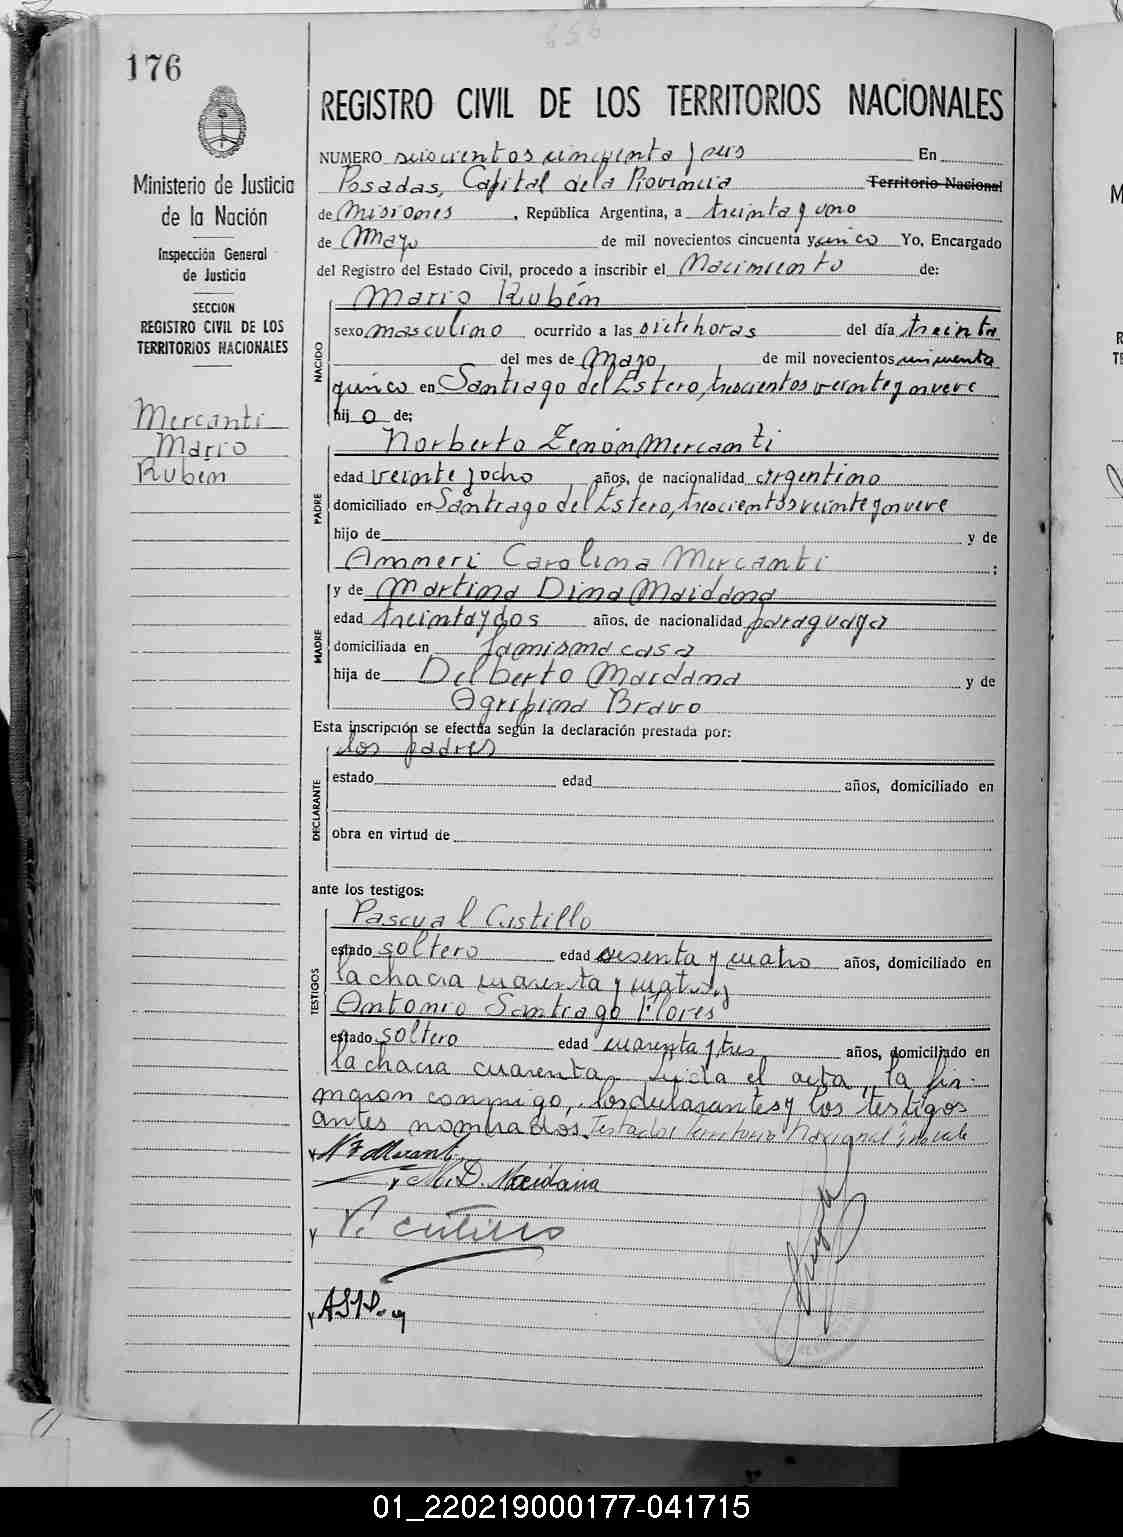 656
176
REGISTRO CIVIL DE LOS TERRITORIOS NACIONALES
Ministerio de Justicia
de la Nación
Inspección General
de Justicia
SECCION
REGISTRO CIVIL DE LOS
TERRITORIOS NACIONALES
Mercanti
Mario
Rubén
NUMERO seiscientos cincuenta y seis En
Posadas, Capital de la Provincia Territorio Nacional
de Misiones, República Argentina, a treinta y uno
de Mayo de mil novecientos cincuenta y cinco Yo, Encargado
del Registro del Estado Civil, procedo a inscribir el Nacimiento de:
NACIDO
Mario Rubén
sexo masculino ocurrido a las siete horas del día treinta
del mes de Mayo de mil novecientos cincuenta
y cinco en Santiago del Estero, trescientos veinte y nueve
hijo de;
PADRE
Norberto Zenón Mercanti
edad veinte y ocho años, de nacionalidad argentino
domiciliado en Santiago del Estero, trescientos veinte y nueve
hijo de y de
Ammeri Carolina Mercanti ;
MADRE
y de Martina Dina Maidana
edad treinta y dos años, de nacionalidad paraguaya
domiciliada en la misma casa
hija de Delberto Maidana y de
Agripina Bravo
Esta inscripción se efectúa según la declaración prestada por:
DECLARANTE
los padres
estado edad años, domiciliado en
obra en virtud de
ante los testigos:
TESTIGOS
Pascual Castillo
estado soltero edad sesenta y cuatro años, domiciliado en
la chacra cuarenta y cuatro y
Antonio Santiago Flores
estado soltero edad cuarenta y tres años, domiciliado en
la chacra cuarenta. Leída el acta, la fir-
maron conmigo, los declarantes y los testigos
antes nombrados. Testado: Territorio Nacional: no vale
M. D. Maidana
P. Castillo
01_220219000177-041715